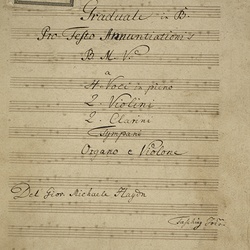 Graduale in B.
Pro Festo Annuntiationis
B. M. V.
a
4 Voci in pieno
2 Violini
2 Clarini
Tympani
Organo e Violone
Del Giov. Michaele Haydn